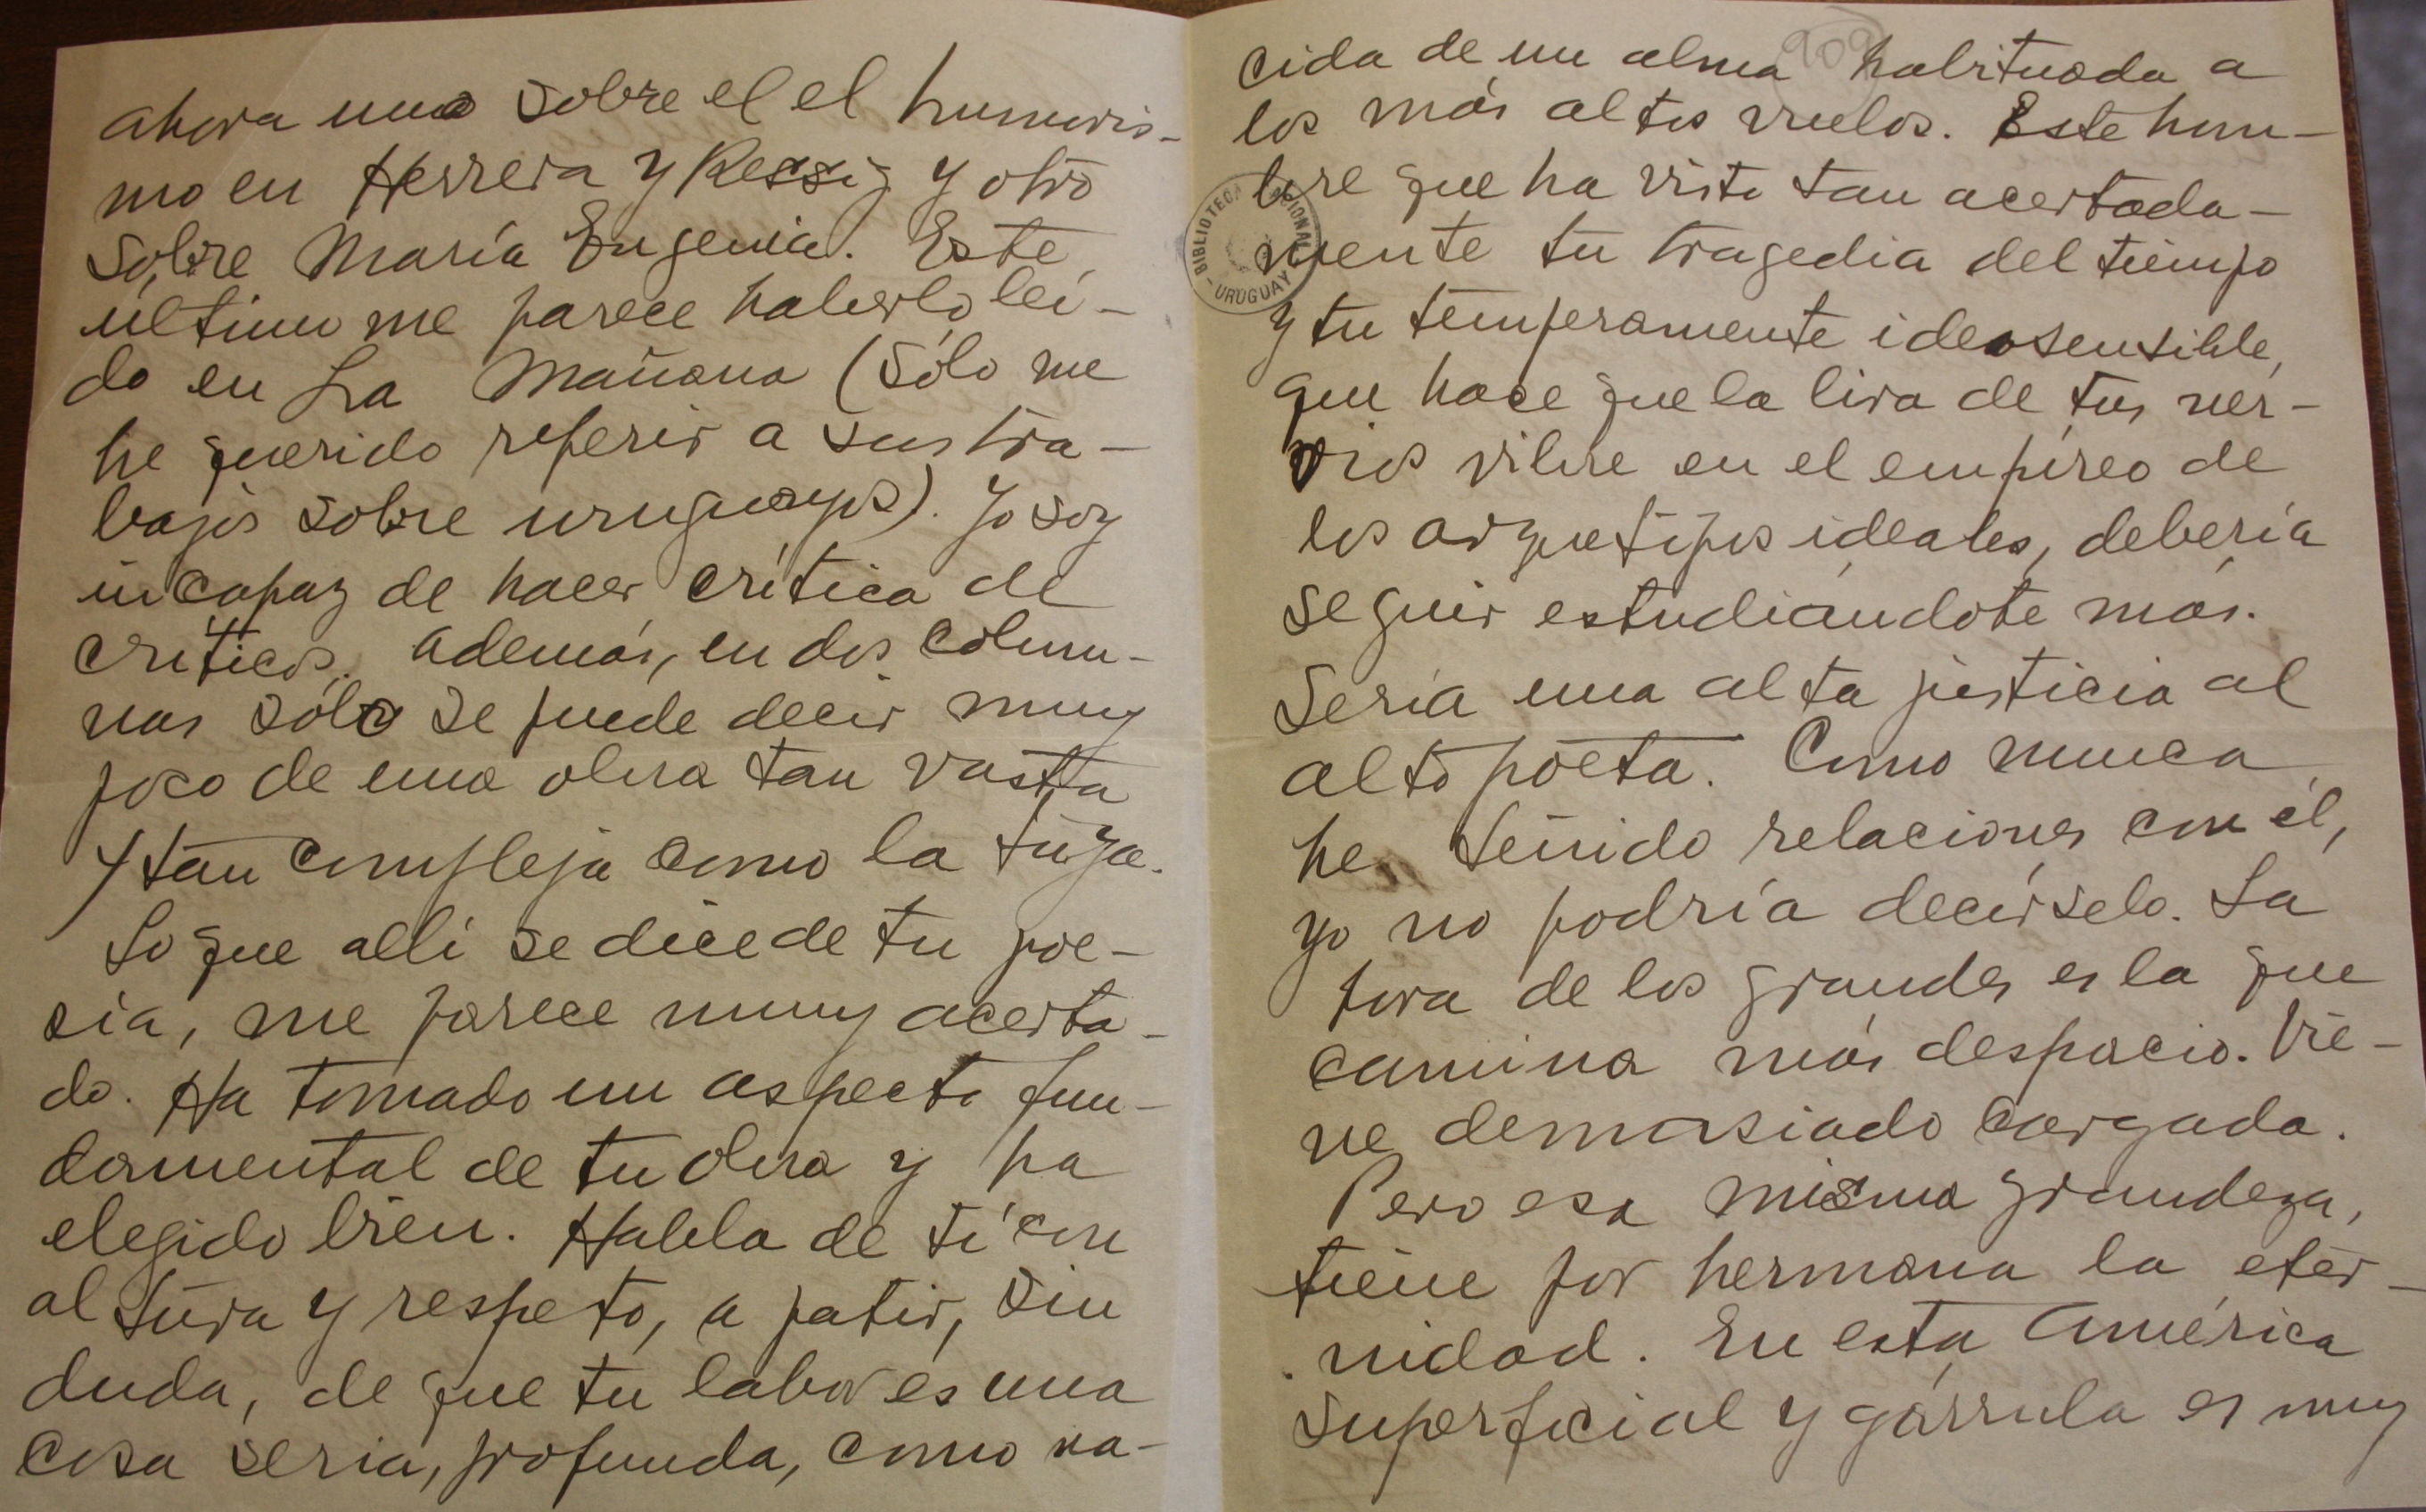 ahora uno sobre el el humoris-
mo en Herrera y Reissig y otro
sobre María Eugenia. Este
último me parece haberlo leí-
do en La Mañana (sólo me
he querido referir a sus tra-
bajos sobre uruguayos). Yo soy
incapaz de hacer crítica de
críticos. Además, en dos colum-
nas sólo se puede decir muy
poco de una obra tan vasta
y tan compleja como la tuya.
Lo que allí se dice de tu poe-
sía, me parece muy acerta-
do. Ha tomado un aspecto fun-
damental de tu obra y ha
elegido bien. Habla de tí con
altura y respeto, a patir, sin
duda, de que tu labor es una
cosa seria, profunda, como na-
909
cida de un alma habituada a
los más altos vuelos. Este hom-
bre que ha visto tan acertada-
mente tu tragedia del tiempo
y tu temperamente ideosensible,
que hace que la lira de tus ner-
vios vibre en el empíreo de
los arquetipos ideales, debería
seguir estudiándote más.
Sería una alta justicia al
alto poeta. Como nunca
he tenido relaciones con él,
yo no podría decírselo. La
hora de los grandes es la que
camina más despacio. Vie-
ne demasiado cargada.
Pero esa misma grandeza,
tiene por hermana la eter-
nidad. En esta América
superficial y gárrula es muy
BIBLIOTECA NACIONAL
- URUGUAY -